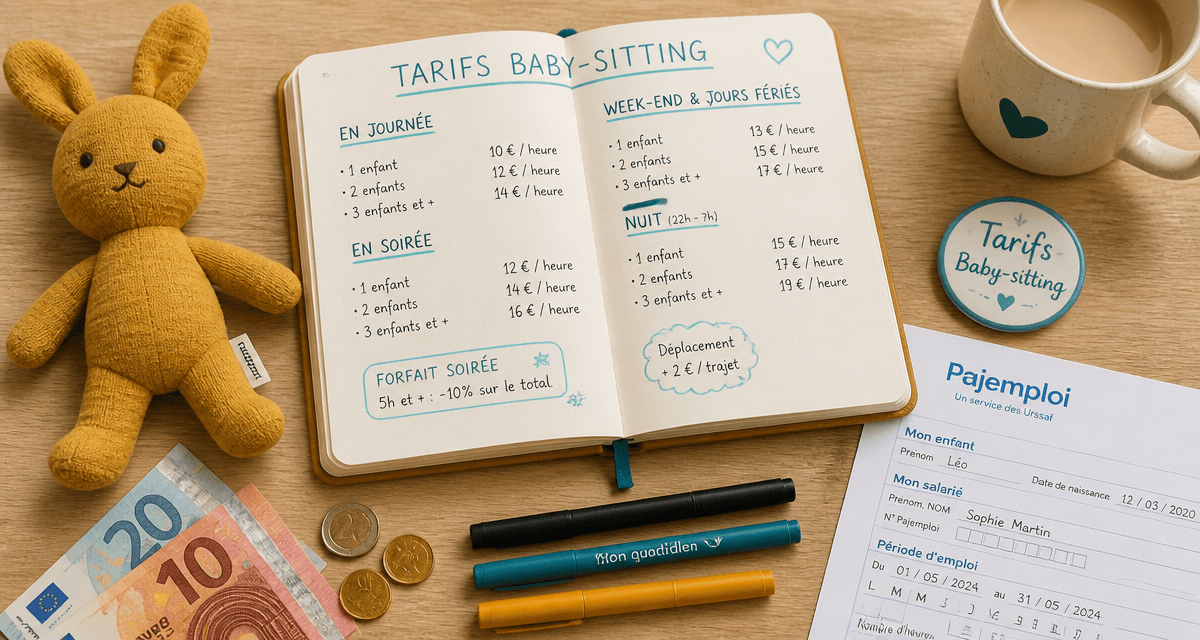 TARIFS BABY-SITTING
EN JOURNÉE
• 1 enfant 10 € / heure
• 2 enfants 12 € / heure
• 3 enfants et + 14 € / heure
EN SOIRÉE
• 1 enfant 12 € / heure
• 2 enfants 14 € / heure
• 3 enfants et + 16 € / heure
FORFAIT SOIRÉE
5h et + : -10% sur le total
WEEK-END & JOURS FÉRIÉS
• 1 enfant 13 € / heure
• 2 enfants 15 € / heure
• 3 enfants et + 17 € / heure
NUIT (22h - 7h)
• 1 enfant 15 € / heure
• 2 enfants 17 € / heure
• 3 enfants et + 19 € / heure
Déplacement
+ 2 € / trajet
Tarifs
Baby-sitting
Pajemploi
Un service des Urssaf
Mon enfant
Prenom Léo Date de naissance 12 / 03 / 2020
Mon salarié
Prenom, NOM Sophie Martin
N° Pajemploi
Période d'emploi
Du 01 / 05 / 2024 au 31 / 05 / 2024
L M M J
Nombre d'heures
Mon quotidien
20
10
2